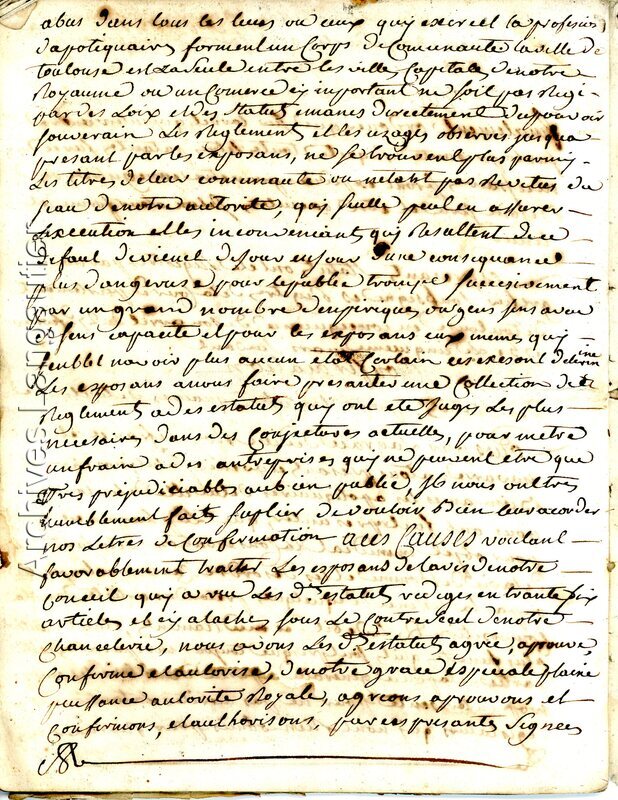 abus dans tous les lieux ou ceux quy exercent la profession
dapotiquaire forment un Corps de Communaute la ville de
toulouse est La seule entre les ville Capitales de notre
Royaume ou un Comerce sy important ne soit pas Regi
par des Loix et des statuts emanes directement du pouvoir
souverain Les Reglement et les uzages observes jusqua
presant par les exposans, ne se trouvent plus parmy
Les titres de leur communaute ou netant pas Revetus du
seau de notre autorite, quy seulle peut en assurer
Lexecution et les inconveniants quy Resultent de ce
defaut devienent de jour en jour dune consequance
plus dangeruse pour le public trompé successivement
par un grand nombre denpiriques ou gens sans aveu
et sens capacite et pour les exposans eux memes quy
senblet navoir plus aucun etat Certain ces
Les exposans a nous faire presanter une Collection de
Reglement a des estatuts quy ont eté juges Les plus
necesaires dans des Conjectures actuelles, pour metre
un fraine a des antreprises quy ne peuvent etre que
tres prejudiciables au bien public, Ils nous ont tres
humblement faits suplier de vouloir bien leur acorder
nos Letres de Confirmation aces Causes voulant
favorablement traiter Les exposans de lavis de notre
Conceil quy a vue Les d.ts estatuts rediges en trante six
articles et cy atachés sous Le Contre scel de notre
Chancelerie, nous avons Les d.ts estatuts agrée, aprouvé,
Confirme et autorise, de notre grace especiale plaine
puissance autorite Royale, agreons aprouvons et
Confirmons, et authorisons, par ces presantes Signees
Archives Langoutier